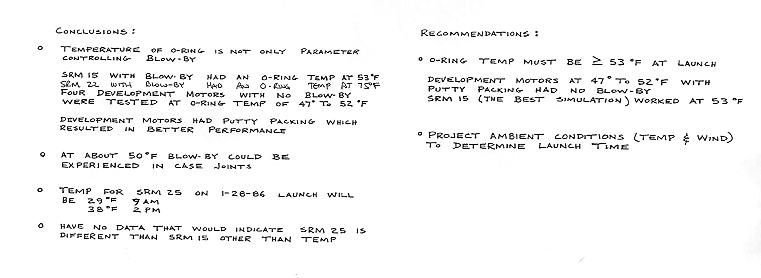 CONCLUSIONS:
○ TEMPERATURE OF O-RING IS NOT ONLY PARAMETER
CONTROLLING BLOW-BY
SRM 15 WITH BLOW-BY HAD AN O-RING TEMP AT 53°F
SRM 22 WITH BLOW-BY HAD AN O-RING TEMP AT 75°F
FOUR DEVELOPMENT MOTORS WITH NO BLOW-BY
WERE TESTED AT O-RING TEMP OF 47° TO 52°F
DEVELOPMENT MOTORS HAD PUTTY PACKING WHICH
RESULTED IN BETTER PERFORMANCE
○ AT ABOUT 50°F BLOW-BY COULD BE
EXPERIENCED IN CASE JOINTS
○ TEMP FOR SRM 25 ON 1-28-86 LAUNCH WILL
BE 29°F 9 AM
38°F 2 PM
○ HAVE NO DATA THAT WOULD INDICATE SRM 25 IS
DIFFERENT THAN SRM 15 OTHER THAN TEMP
RECOMMENDATIONS:
○ O-RING TEMP MUST BE ≥ 53 °F AT LAUNCH
DEVELOPMENT MOTORS AT 47° TO 52°F WITH
PUTTY PACKING HAD NO BLOW-BY
SRM 15 (THE BEST SIMULATION) WORKED AT 53°F
○ PROJECT AMBIENT CONDITIONS (TEMP & WIND)
TO DETERMINE LAUNCH TIME